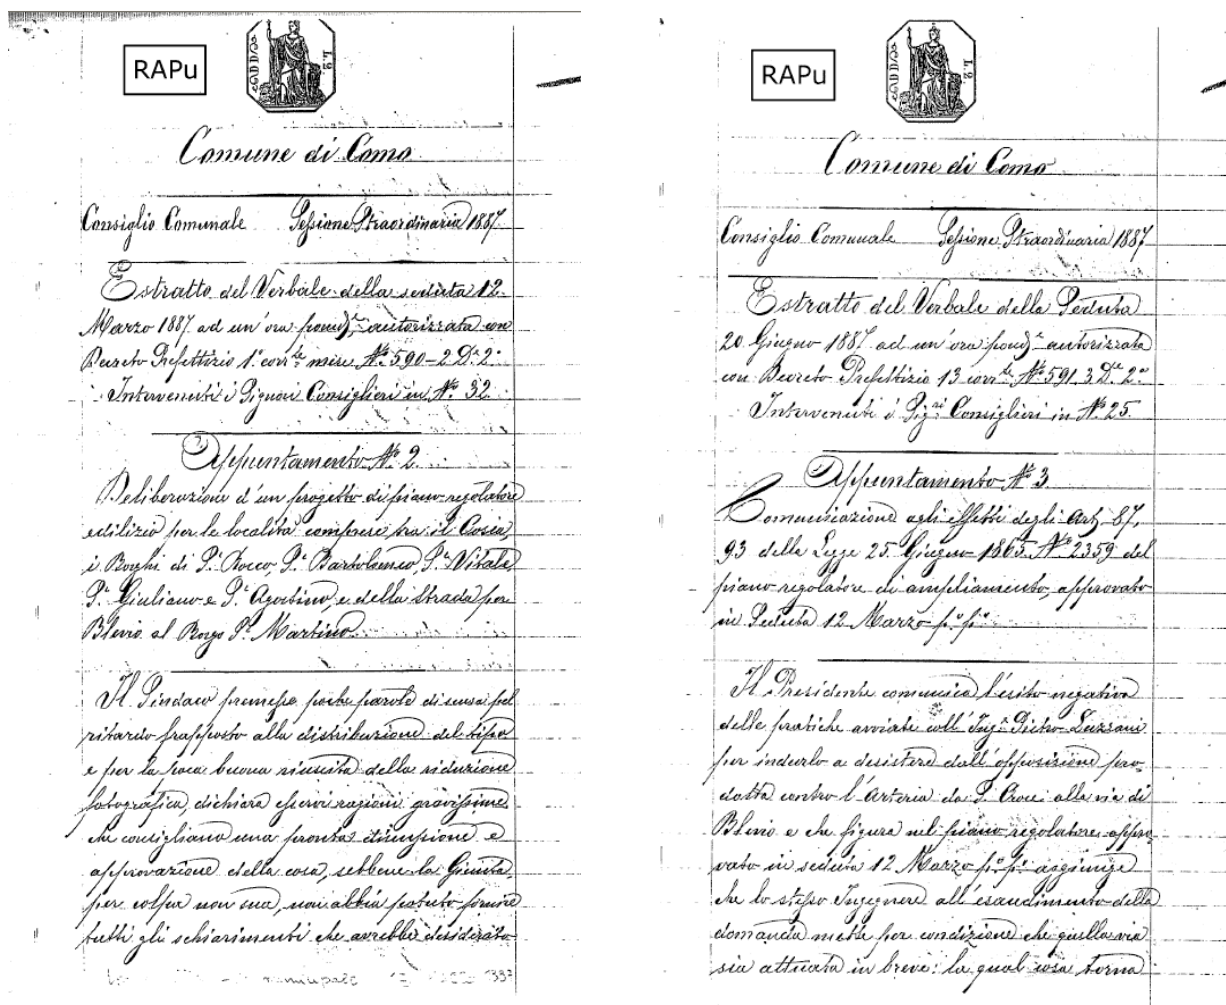 RAPu
L. 2
Comune di Como
Consiglio Comunale Sessione Straordinaria 1887.
Estratto del Verbale della seduta 12
Marzo 1887 ad un'ora pomd.e autorizzata con
Decreto Prefettizio 1° corr.te mese N.° 590-2 D.e 2.a
Intervenuti i Signori Consiglieri in N.° 32.
Appuntamento N.° 2.
Deliberazione d'un progetto di piano regolatore
edilizio per le località comprese fra il Cosia,
i Borghi di S. Rocco, S. Bartolomeo, S. Vitale
S. Giuliano e S. Agostino, e della strada per
Blevio al Borgo S. Martino.
Il Sindaco premesse poche parole di scusa pel
ritardo frapposto alla distribuzione del tipo
e per la poca buona riuscita della riduzione
fotografica, dichiara esservi ragioni gravissime
che consigliano una pronta discussione e
approvazione della cosa, sebbene la Giunta,
per colpa non sua, non abbia potuto fornire
tutti gli schiarimenti che avrebbe desiderato
RAPu
L. 2
Comune di Como
Consiglio Comunale Sessione Straordinaria 1887
Estratto del Verbale della Seduta
20 Giugno 1887 ad un'ora pomd.e autorizzata
con Decreto Prefettizio 13 corr.te N.° 591.3 D.e 2.a
Intervenuti i Sig.ri Consiglieri in N.° 25.
Appuntamento N.° 3.
Comunicazione agli effetti degli Art. 87,
93 della Legge 25 Giugno 1865 N.° 2359 del
piano regolatore di ampliamento, approvato
in Seduta 12 Marzo p.° p.°
Il Presidente comunica l'esito negativo
delle pratiche avviate coll'Ing.e Pietro Luzzani
per indurlo a desistere dall'opposizione pro-
dotta contro l'arteria da S. Croce alla via di
Blevio e che figura nel piano regolatore appro-
vato in seduta 12 Marzo p.° p.° aggiunge
che lo stesso Ingegnere all'esaudimento della
domanda mette per condizione che quella via
sia attuata in breve: la qual cosa torna